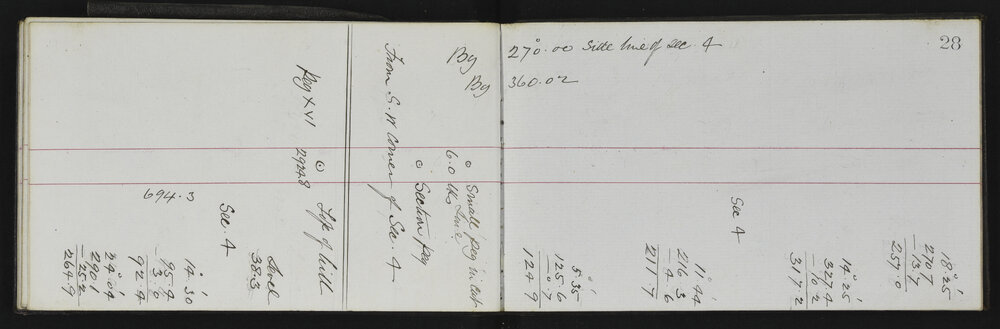 28
By 270°.00 Side line of Sec. 4
By 360.02
18° 25'
270 7
– 13.7
257.0
14° 25'
327 4
– 10 2
317.2
Sec 4
11° 44'
216 3
– 4 6
211 7
5° 35'
125.6
– 0.7
124 9
⊙ Small peg in
6.0 lks
⊙ Section peg
From S.W Corner of Sec. 4
Peg XVI
⊙ Top of hill
29248
Level
38.3
Sec. 4
694.3
14° 30'
95.4
3 0
92 4
24° 04'
290 1
– 25 2
264 9